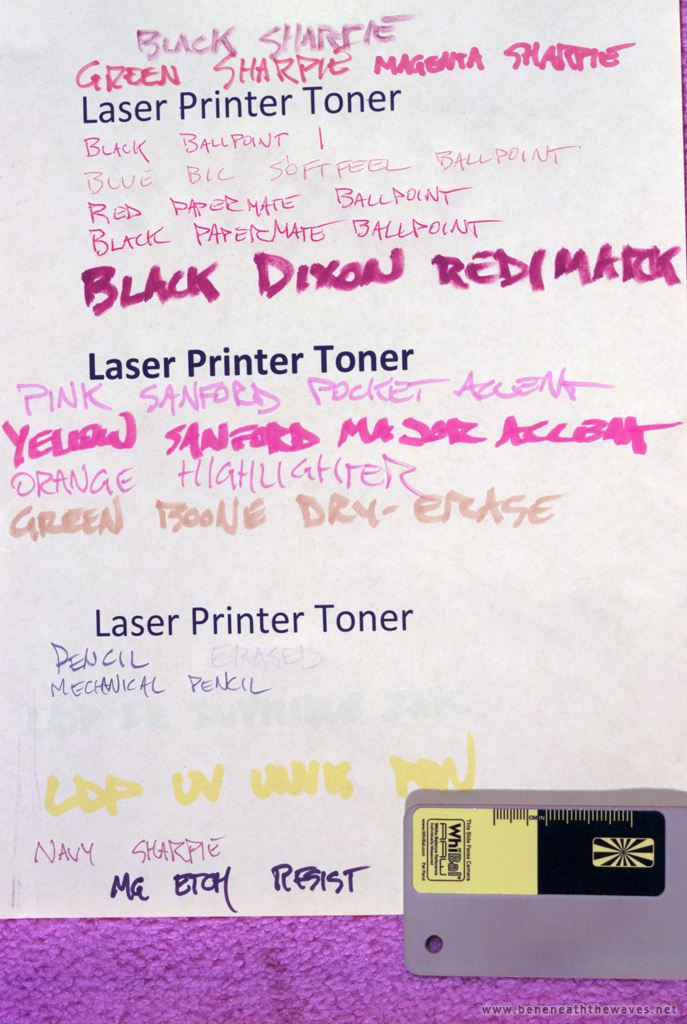 BLACK SHARPIE
GREEN SHARPIE MAGENTA SHARPIE
Laser Printer Toner
BLACK BALLPOINT 1
BLUE BIC SOFTFEEL BALLPOINT
RED PAPERMATE BALLPOINT
BLACK PAPERMATE BALLPOINT
BLACK DIXON REDIMARK
Laser Printer Toner
PINK SANFORD POCKET ACCENT
YELLOW SANFORD MAJOR ACCENT
ORANGE HIGHLIGHTER
GREEN BOONE DRY-ERASE
Laser Printer Toner
PENCIL ERASED
MECHANICAL PENCIL
LDP IR INVISIBLE INK
LDP UV PEN
NAVY SHARPIE
MG ETCH RESIST
This Side Faces Camera
WhiBal
RAW
White Balance Reference
www.WhiBal.com
CM IN
www.beneneaththewaves.net